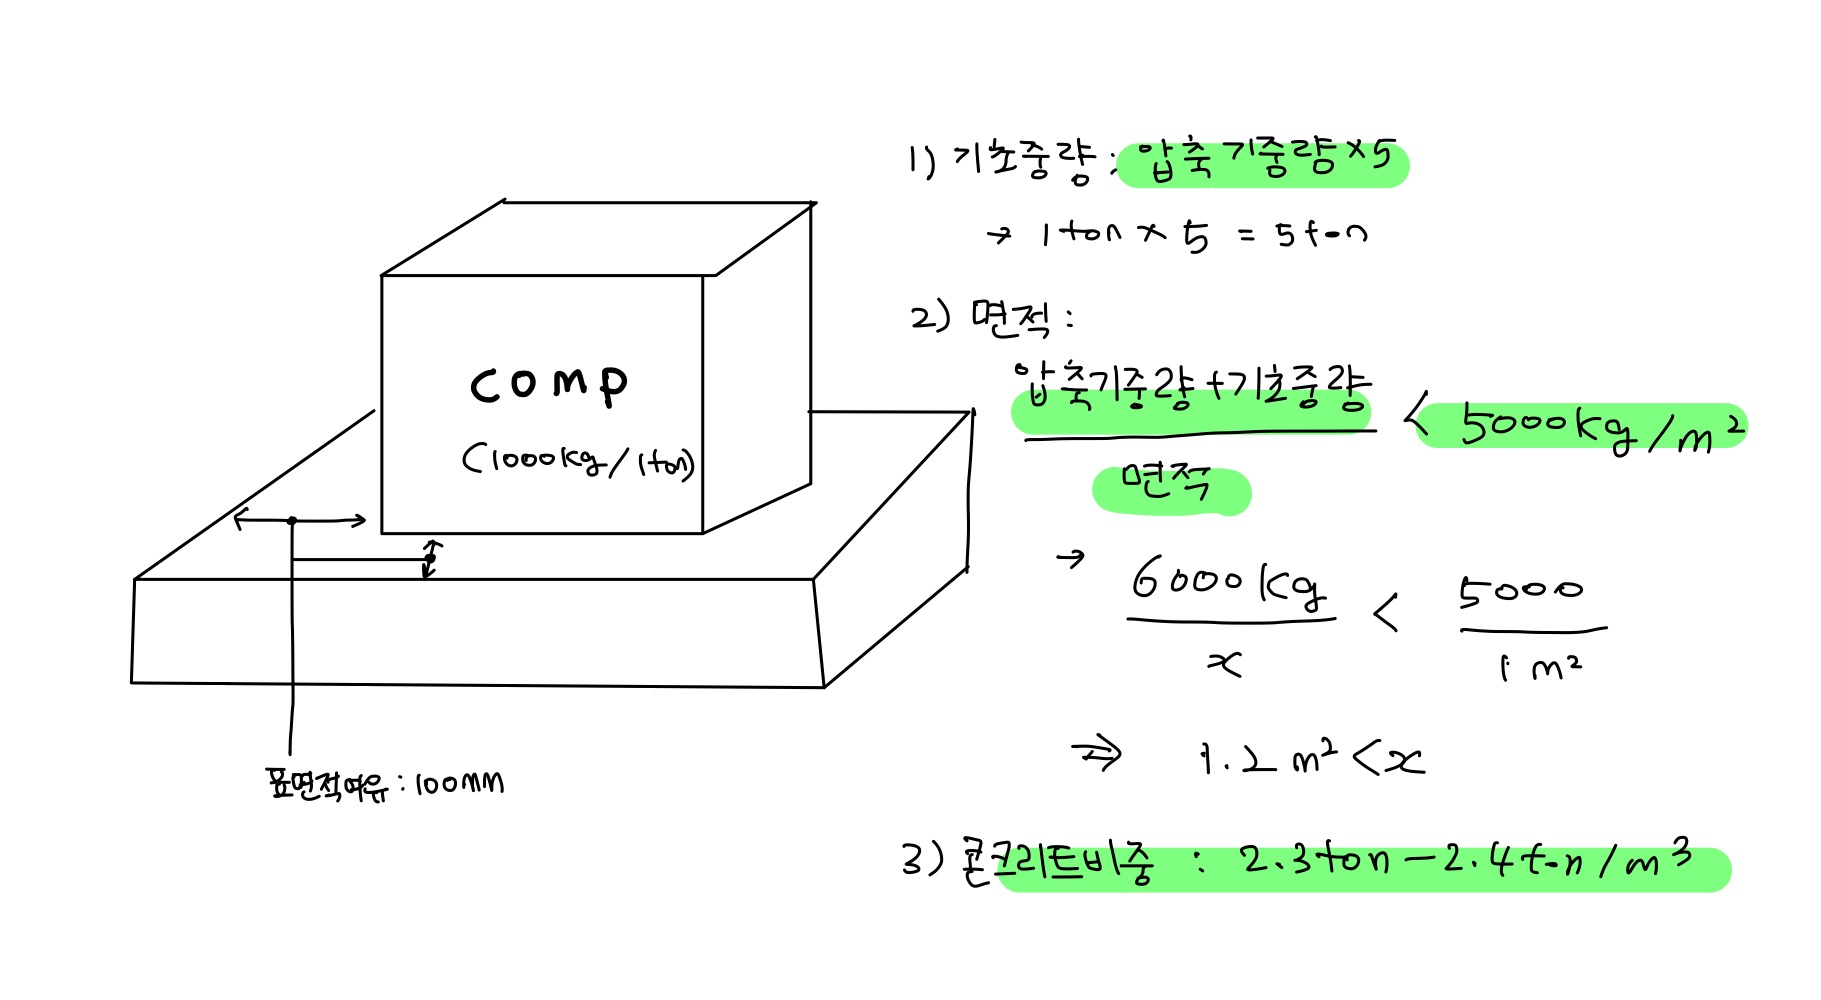 comp
(1000kg/1ton)
표면적여유:100mm
1) 기초중량: 압축기중량×5
→ 1ton × 5 = 5ton
2) 면적:
압축기중량+기초중량
면적
< 5000kg/m²
→ 6000kg
x
< 5000
1m²
⇒ 1.2m² < x
3) 콘크리트비중 : 2.3ton-2.4ton/m³